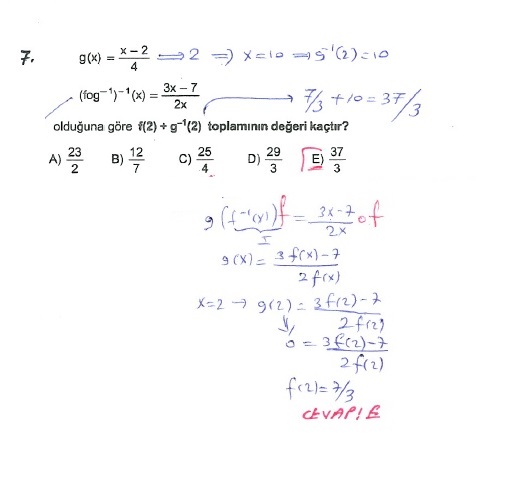 7. g(x) = x – 2 / 4 ⟹ 2 ⇒ x = 10 ⇒ g⁻¹(2) = 10
(fog⁻¹)⁻¹(x) = 3x – 7 / 2x → 7/3 + 10 = 37/3
olduğuna göre f(2) + g⁻¹(2) toplamının değeri kaçtır?
A) 23/2 B) 12/7 C) 25/4 D) 29/3 E) 37/3
g(f⁻¹(x))f = 3x-7 / 2x o f
I
g(x) = 3f(x)-7 / 2f(x)
x=2 → g(2) = 3f(2)-7 / 2f(2)
0 = 3f(2)-7 / 2f(2)
f(2) = 7/3
CEVAP: E